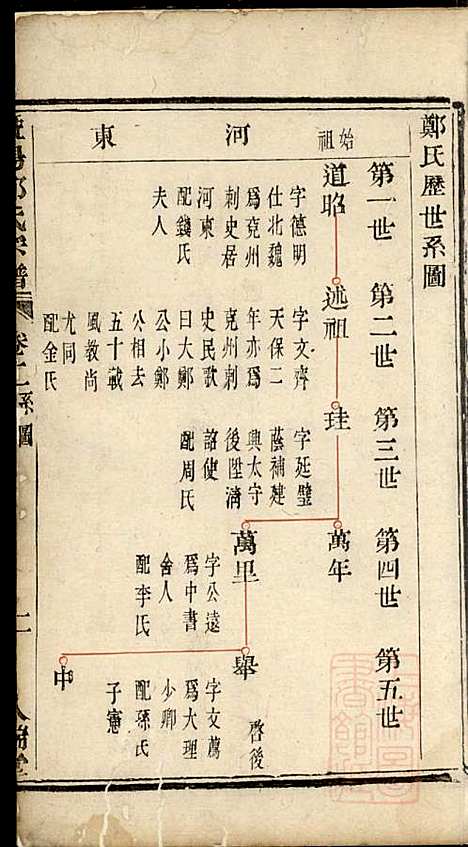 鄭氏歷世系圖
第一世
第二世
第三世
第四世
第五世
河東
始祖
道昭
字德明
仕北魏
爲兗州
刺史居
河東
配錢氏
夫人
述祖
字文齊
天保二
年亦爲
兗州刺
史民歌
曰大鄭
公小鄭
公相去
五十載
風教尚
尤同
配金氏
珪
字延璧
蔭補建
興太守
後陞濟
詔使
配周氏
萬年
萬里
字公遠
爲中書
舍人
配李氏
舉
啓後
字文薦
爲大理
少卿
配孫氏
子憲
中
鄭氏宗譜
卷十一系圖